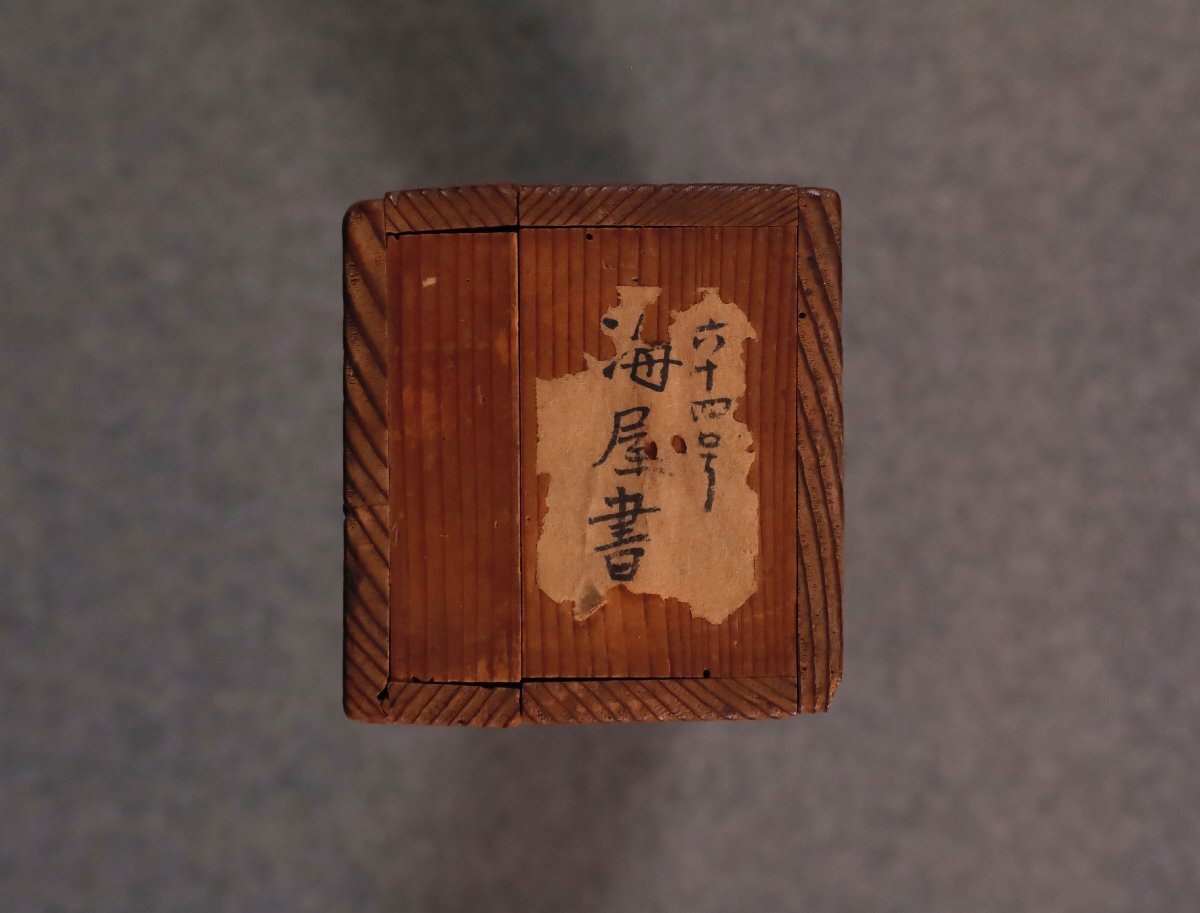 六十四号
海屋書